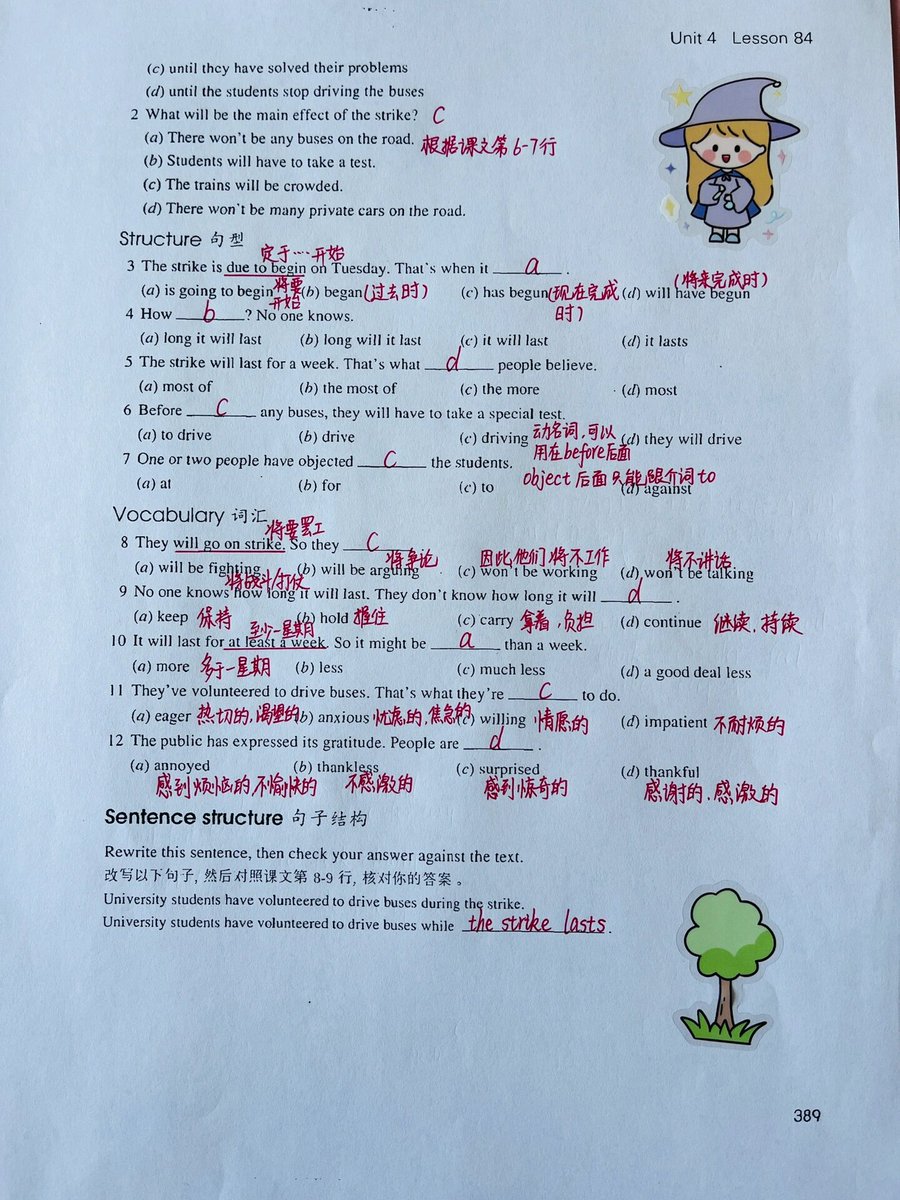 Unit 4 Lesson 84
(c) until they have solved their problems
(d) until the students stop driving the buses
2 What will be the main effect of the strike? C
(a) There won't be any buses on the road. 根据课文第6-7行
(b) Students will have to take a test.
(c) The trains will be crowded.
(d) There won't be many private cars on the road.
Structure 句型
定于…开始
3 The strike is due to begin on Tuesday. That's when it a .
(a) is going to begin 将要开始 (b) began (过去时) (c) has begun (现在完成时) (d) will have begun (将来完成时)
4 How b ? No one knows.
(a) long it will last (b) long will it last (c) it will last (d) it lasts
5 The strike will last for a week. That's what d people believe.
(a) most of (b) the most of (c) the more (d) most
6 Before C any buses, they will have to take a special test.
(a) to drive (b) drive (c) driving 动名词,可以用在before后面 (d) they will drive
7 One or two people have objected C the students.
object 后面只能跟介词to
(a) at (b) for (c) to (d) against
Vocabulary 词汇
将要罢工
8 They will go on strike. So they C
(a) will be fighting 将战斗/打仗 (b) will be arguing 将争论 (c) won't be working 因此,他们将不工作 (d) won't be talking 将不讲话
9 No one knows how long it will last. They don't know how long it will d .
(a) keep 保持 (b) hold 握住 (c) carry 拿着,负担 (d) continue 继续,持续
至少一星期
10 It will last for at least a week. So it might be a than a week.
(a) more 多于一星期 (b) less (c) much less (d) a good deal less
11 They've volunteered to drive buses. That's what they're C to do.
(a) eager 热切的,渴望的 (b) anxious 忧虑的,焦急的 (c) willing 情愿的 (d) impatient 不耐烦的
12 The public has expressed its gratitude. People are d .
(a) annoyed (b) thankless (c) surprised (d) thankful
感到烦恼的,不愉快的 不感激的 感到惊奇的 感谢的,感激的
Sentence structure 句子结构
Rewrite this sentence, then check your answer against the text.
改写以下句子, 然后对照课文第 8-9 行, 核对你的答案 。
University students have volunteered to drive buses during the strike.
University students have volunteered to drive buses while the strike lasts.
389